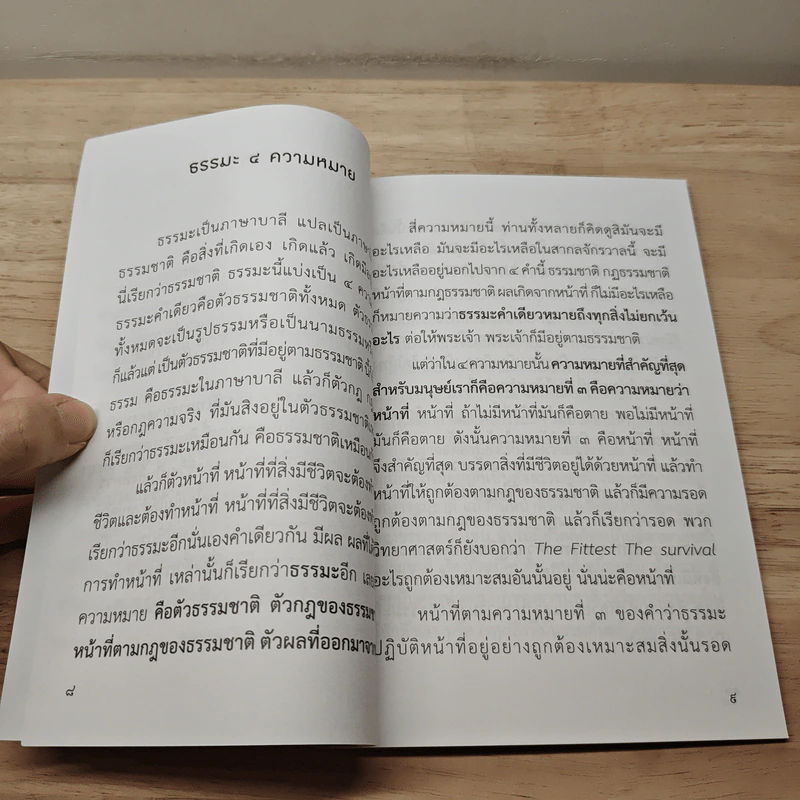 ธรรมะ ๔ ความหมาย
ธรรมะเป็นภาษาบาลี แปลเป็นภาษา
ธรรมชาติ คือสิ่งที่เกิดเอง เกิดแล้ว เกิด
นี่เรียกว่าธรรมชาติ ธรรมะนี้แบ่งเป็น ๔
ธรรมะคำเดียวคือตัวธรรมชาติทั้งหมด
ทั้งหมดจะเป็นรูปธรรมหรือเป็นนามธรรม
ก็แล้วแต่ เป็นตัวธรรมชาติที่มีอยู่ตามธรรมชาติ
ธรรม คือธรรมะในภาษาบาลี แล้วก็ตัวกฎ
หรือกฎความจริง ที่มันสิงอยู่ในตัวธรรมชาติ
ก็เรียกว่าธรรมะเหมือนกัน คือธรรมชาติเหมือน
แล้วก็ตัวหน้าที่ หน้าที่ที่สิ่งมีชีวิตจะต้อง
ชีวิตและต้องทำหน้าที่ หน้าที่ที่สิ่งมีชีวิตจะต้อง
เรียกว่าธรรมะอีกนั่นเองคำเดียวกัน มีผล ผลที่
การทำหน้าที่ เหล่านั้นก็เรียกว่าธรรมะอีก
ความหมาย คือตัวธรรมชาติ ตัวกฎของธรรม
หน้าที่ตามกฎของธรรมชาติ ตัวผลที่ออกมา
๘
สี่ความหมายนี้ ท่านทั้งหลายก็คิดดูสิมันจะมี
อะไรเหลือ มันจะมีอะไรเหลือในสากลจักรวาลนี้ จะมี
อะไรเหลืออยู่นอกไปจาก ๔ คำนี้ ธรรมชาติ กฎธรรมชาติ
หน้าที่ตามกฎธรรมชาติ ผลเกิดจากหน้าที่ ก็ไม่มีอะไรเหลือ
ก็หมายความว่าธรรมะคำเดียวหมายถึงทุกสิ่งไม่ยกเว้น
อะไร ต่อให้พระเจ้า พระเจ้าก็มีอยู่ตามธรรมชาติ
แต่ว่าใน ๔ ความหมายนั้น ความหมายที่สำคัญที่สุด
สำหรับมนุษย์เราก็คือความหมายที่ ๓ คือความหมายว่า
หน้าที่ หน้าที่ ถ้าไม่มีหน้าที่มันก็คือตาย พอไม่มีหน้าที่
มันก็คือตาย ดังนั้นความหมายที่ ๓ คือหน้าที่ หน้าที่
จึงสำคัญที่สุด บรรดาสิ่งที่มีชีวิตอยู่ได้ด้วยหน้าที่ แล้วทำ
หน้าที่ให้ถูกต้องตามกฎของธรรมชาติ แล้วก็มีความรอด
ถูกต้องตามกฎของธรรมชาติ แล้วก็เรียกว่ารอด พวก
วิทยาศาสตร์ก็ยังบอกว่า The Fittest The survival
อะไรถูกต้องเหมาะสมอันนั้นอยู่ นั่นน่ะคือหน้าที่
หน้าที่ตามความหมายที่ ๓ ของคำว่าธรรมะ
ปฏิบัติหน้าที่อยู่อย่างถูกต้องเหมาะสมสิ่งนั้นรอด
๙